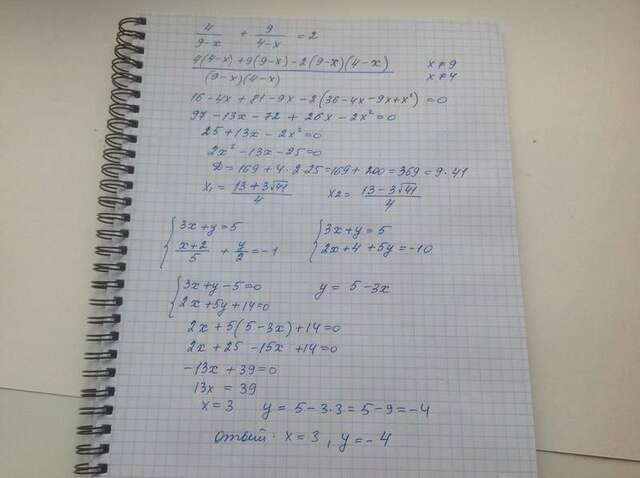 4/(9-x) + 9/(4-x) = 2
(4(4-x)+9(9-x)-2(9-x)(4-x))/((9-x)(4-x)) x≠9
x≠4
16-4x+81-9x-2(36-4x-9x+x²)=0
97-13x-72+26x-2x²=0
25+13x-2x²=0
2x²-13x-25=0
D=169+4·2·25=169+200=369=9·41
x₁=(13+3√41)/4 x2=(13-3√41)/4
{3x+y=5 {3x+y=5
(x+2)/5 + y/2 = -1 2x+4+5y=-10
{3x+y-5=0 y=5-3x
2x+5y+14=0
2x+5(5-3x)+14=0
2x+25-15x+14=0
-13x+39=0
13x=39
x=3 y=5-3·3=5-9=-4
ответ: x=3, y=-4